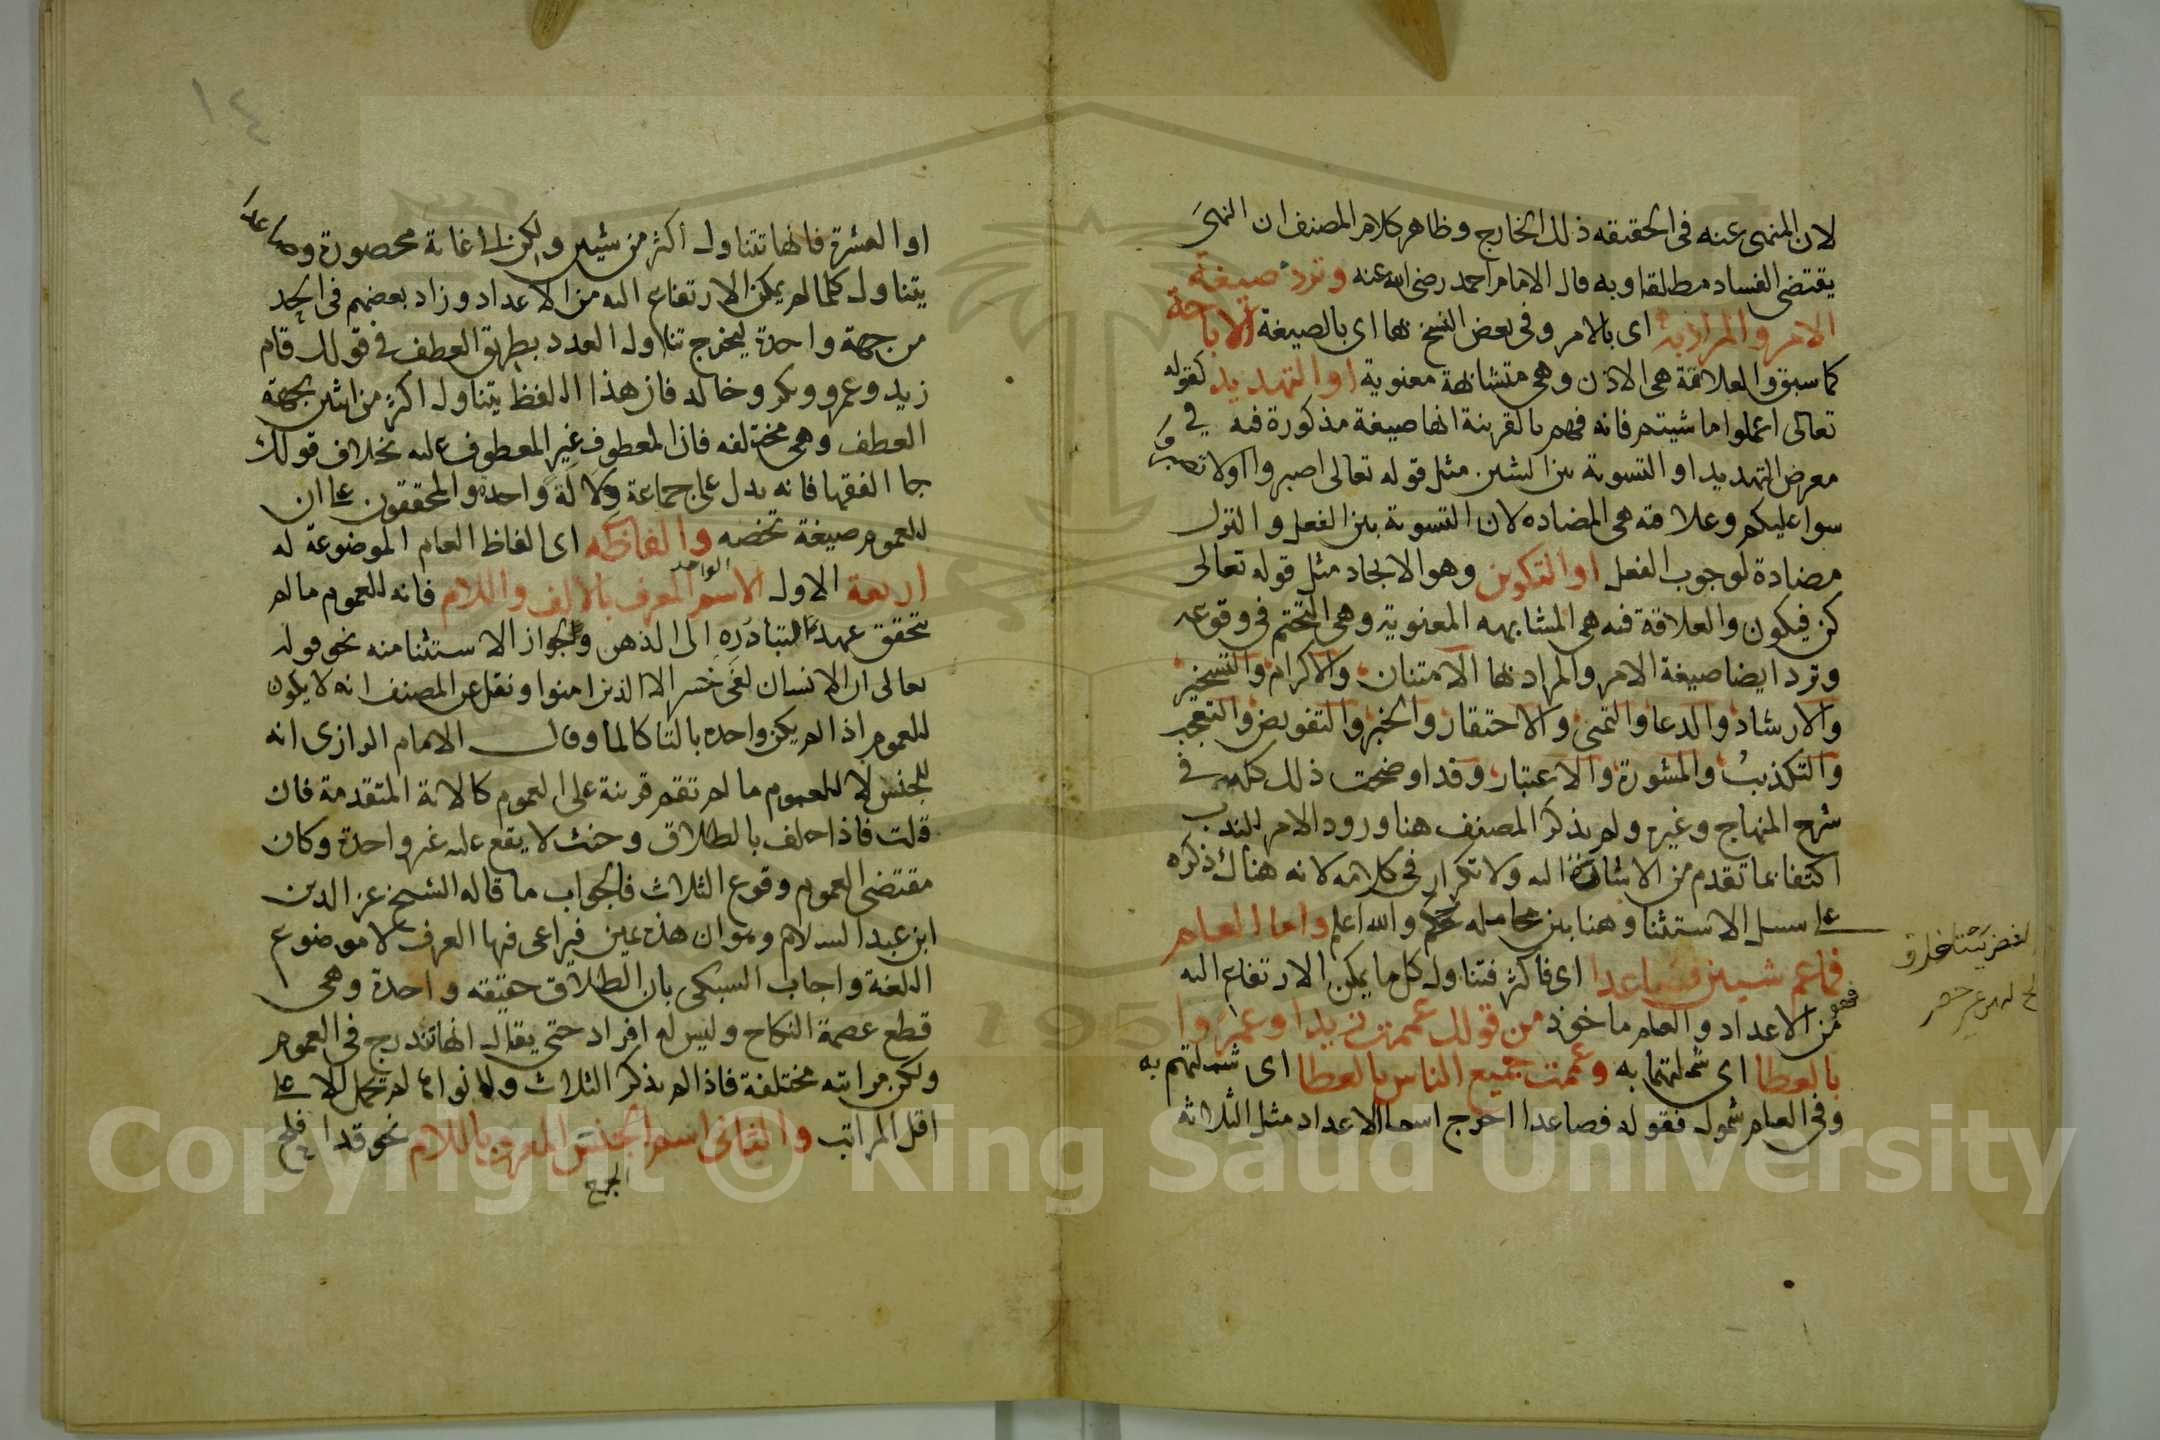 لان المنهى عنه فى الحقيقه ذلك الخارج وظاهر كلام المصنف ان النهى
يقتضى الفساد مطلقا وبه قال الامام احمد رضى الله عنه وترد صيغة
الامر والمراد به اى بالامر وفى بعض النسخ بها اى بالصيغة الاباحة
كما سبق والعلاقة هى الاذن وهى متشابهة معنوية او التهديد كقوله
تعالى اعملوا ما شيتم فانه فهم بالقرينة انها صيغة مذكورة فيه في
معرض التهديد او التسوية بين الشيئين مثل قوله تعالى اصبروا اولا تصبروا
سوا عليكم وعلاقته هى المضاده لان التسوية بين الفعل والترك
مضادة لوجوب الفعل او التكوين وهو الايجاد مثل قوله تعالى
كن فيكون والعلاقة فيه هى المشابهه المعنوية وهى التحتم فى وقوعه
وترد ايضا صيغة الامر والمراد بها الامتنان والاكرام والتسخير
والارشاد والدعا والتمنى والاحتقار والخبر والتفويض والتعجب
والتكذيب والمشورة والاعتبار وقد اوضحت ذلك كله في
شرح المنهاج وغيره ولم يذكر المصنف هنا ورود الامر للندب
اكتفا بما تقدم من الاشارة اليه ولا تكرار فى كلامه لانه هناك ذكره
على سبيل الاستثنا وهنا بين محامله والله اعلم واما العام
فما عم شيين فصاعدا اى فاكثر فتناول كل ما يمكن الارتفاع اليه
من الاعداد والعام ماخوذ من قولك عممت زيدا وعمروا
بالعطا اى شملتهما به وعممت جميع الناس بالعطا اى شملتهم به
وفى العام شمول فقوله فصاعدا اخرج اسما الاعداد مثل الثلاثه
١٤
او العشرة فانها تتناول اكثر من شيين ولكن الى غاية محصورة وصاعدا
يتناول كلما لم يمكن الارتفاع اليه من الاعداد وزاد بعضهم فى الحد
من جهة واحدة ليخرج تناول العدد بطريق العطف في قولك قام
زيد وعمرو وبكر وخالد فان هذا اللفظ يتناول اكثر من اثنين بجهة
العطف وهى مختلفه فان المعطوف غير المعطوف عليه بخلاف قولك
جا الفقها فانه يدل على جماعة دلالة واحدة والمحققون على ان
للعموم صيغة تخصه والفاظه اى الفاظ العام الموضوعة له
اربعة الاول الاسم الواحد المعرف بالالف واللام فانه للعموم ما لم
يتحقق عهد لتبادره الى الذهن ولجواز الاستثنا منه نحو قوله
تعالى ان الانسان لفى خسر الا الذين امنوا ونقل عن المصنف انه لا يكون
للعموم اذا لم يكن واحده بالتا كالما وقال الامام الرازى انه
للجنس لا للعموم ما لم تقم قرينة على العموم كالاية المتقدمة فان
قلت فاذا حلف بالطلاق وحنث لا يقع عليه غير واحدة وكان
مقتضى العموم وقوع الثلاث فالجواب ما قاله الشيخ عز الدين
ابن عبد السلام وهو ان هذه يمين فيراعى فيها العرف لا موضوع
اللغة واجاب السبكى بان الطلاق حقيقه واحدة وهى
قطع عصمة النكاح وليس له افراد حتى يقال انها تندرج فى العموم
ولكن مراتبه مختلفة فاذا لم يذكر الثلاث ولا نواها لم تحمل الا على
اقل المراتب والثانى اسم الجنس المعرف باللام نحو قد افلح
الجمع
Copyright © King Saud University